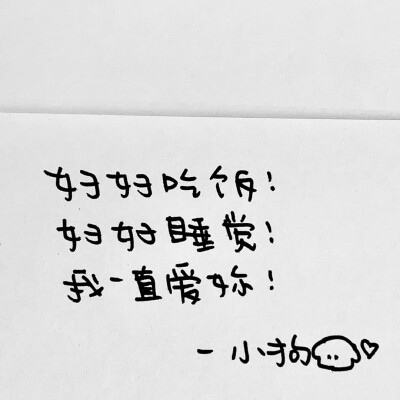 好好吃饭！
好好睡觉！
我一直爱妳！
-小狗